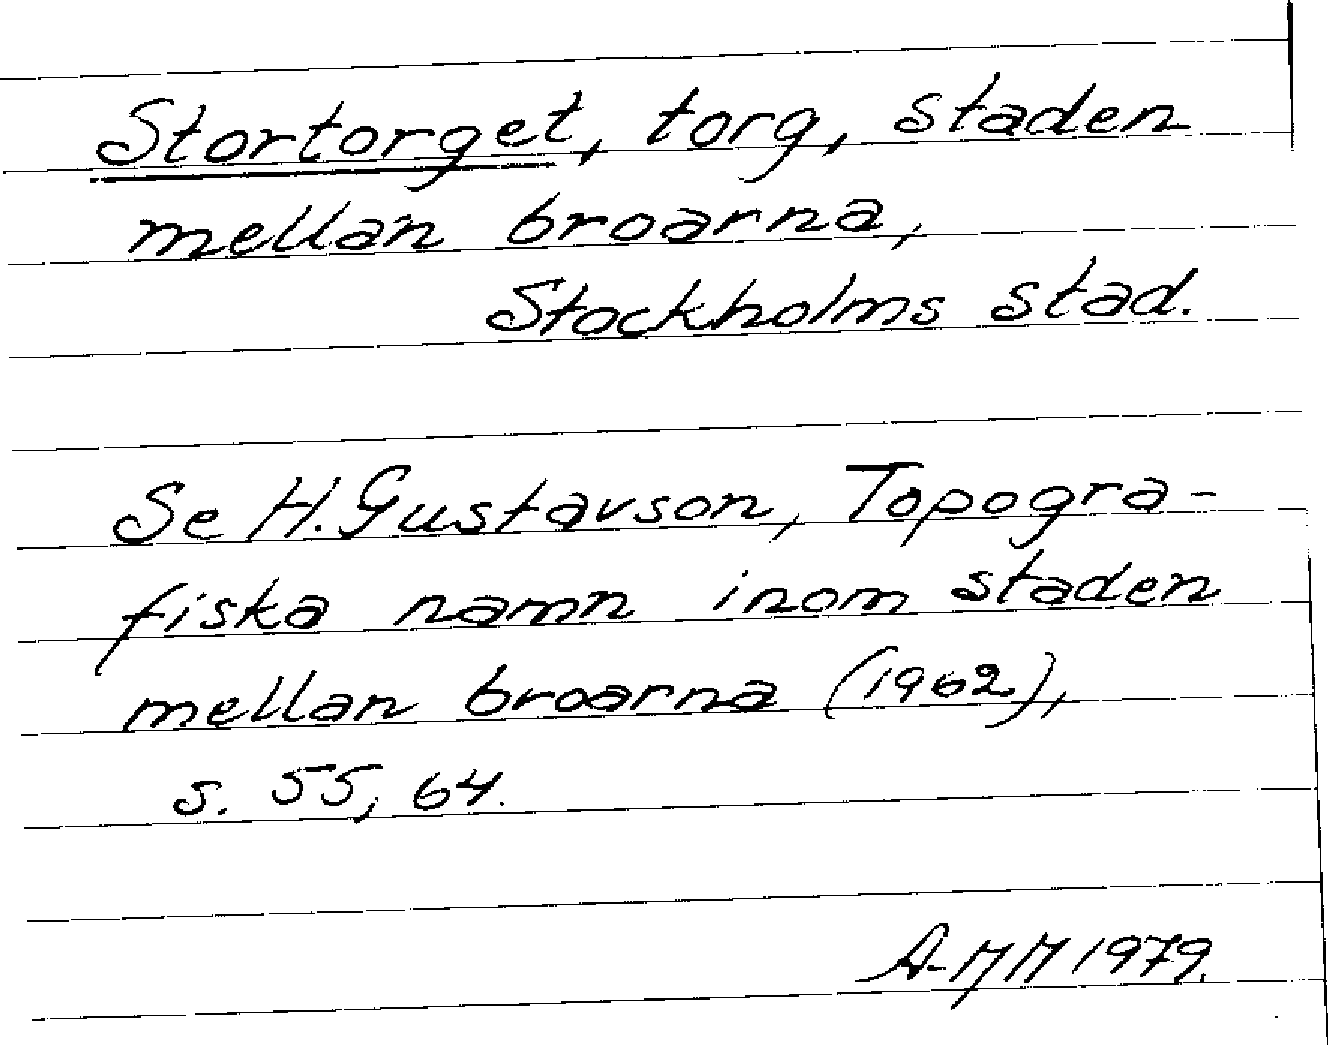 Stortorget, torg, staden
mellan broarna,
Stockholms stad.
Se H. Gustavson, Topogra-
fiska namn inom staden
mellan broarna (1962),
s. 55, 64.
A-MM 1979.